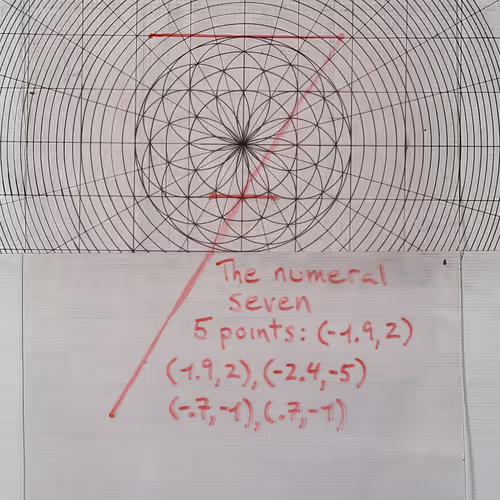 The numeral
seven
5 points: (-1.9, 2)
(1.9, 2), (-2.4, -5)
(-.7, -1), (.7, -1)